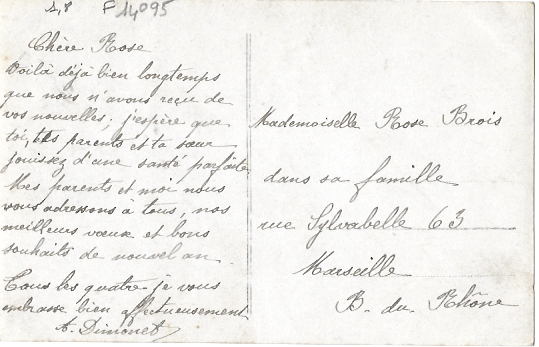 1,8 F14095
Chère Rose
Voilà déjà bien longtemps
que nous n'avons reçu de
vos nouvelles; j'espère que
toi, tes parents et ta sœur
jouissez d'une santé parfaite
Mes parents et moi nous
vous adressons à tous, nos
meilleurs vœux et bons
souhaits de nouvel an.
Tous les quatre je vous
embrasse bien affectueusement
A. Dimonet
Mademoiselle Rose Brois
dans sa famille
rue Sylvabelle 63
Marseille
B. du. Rhône